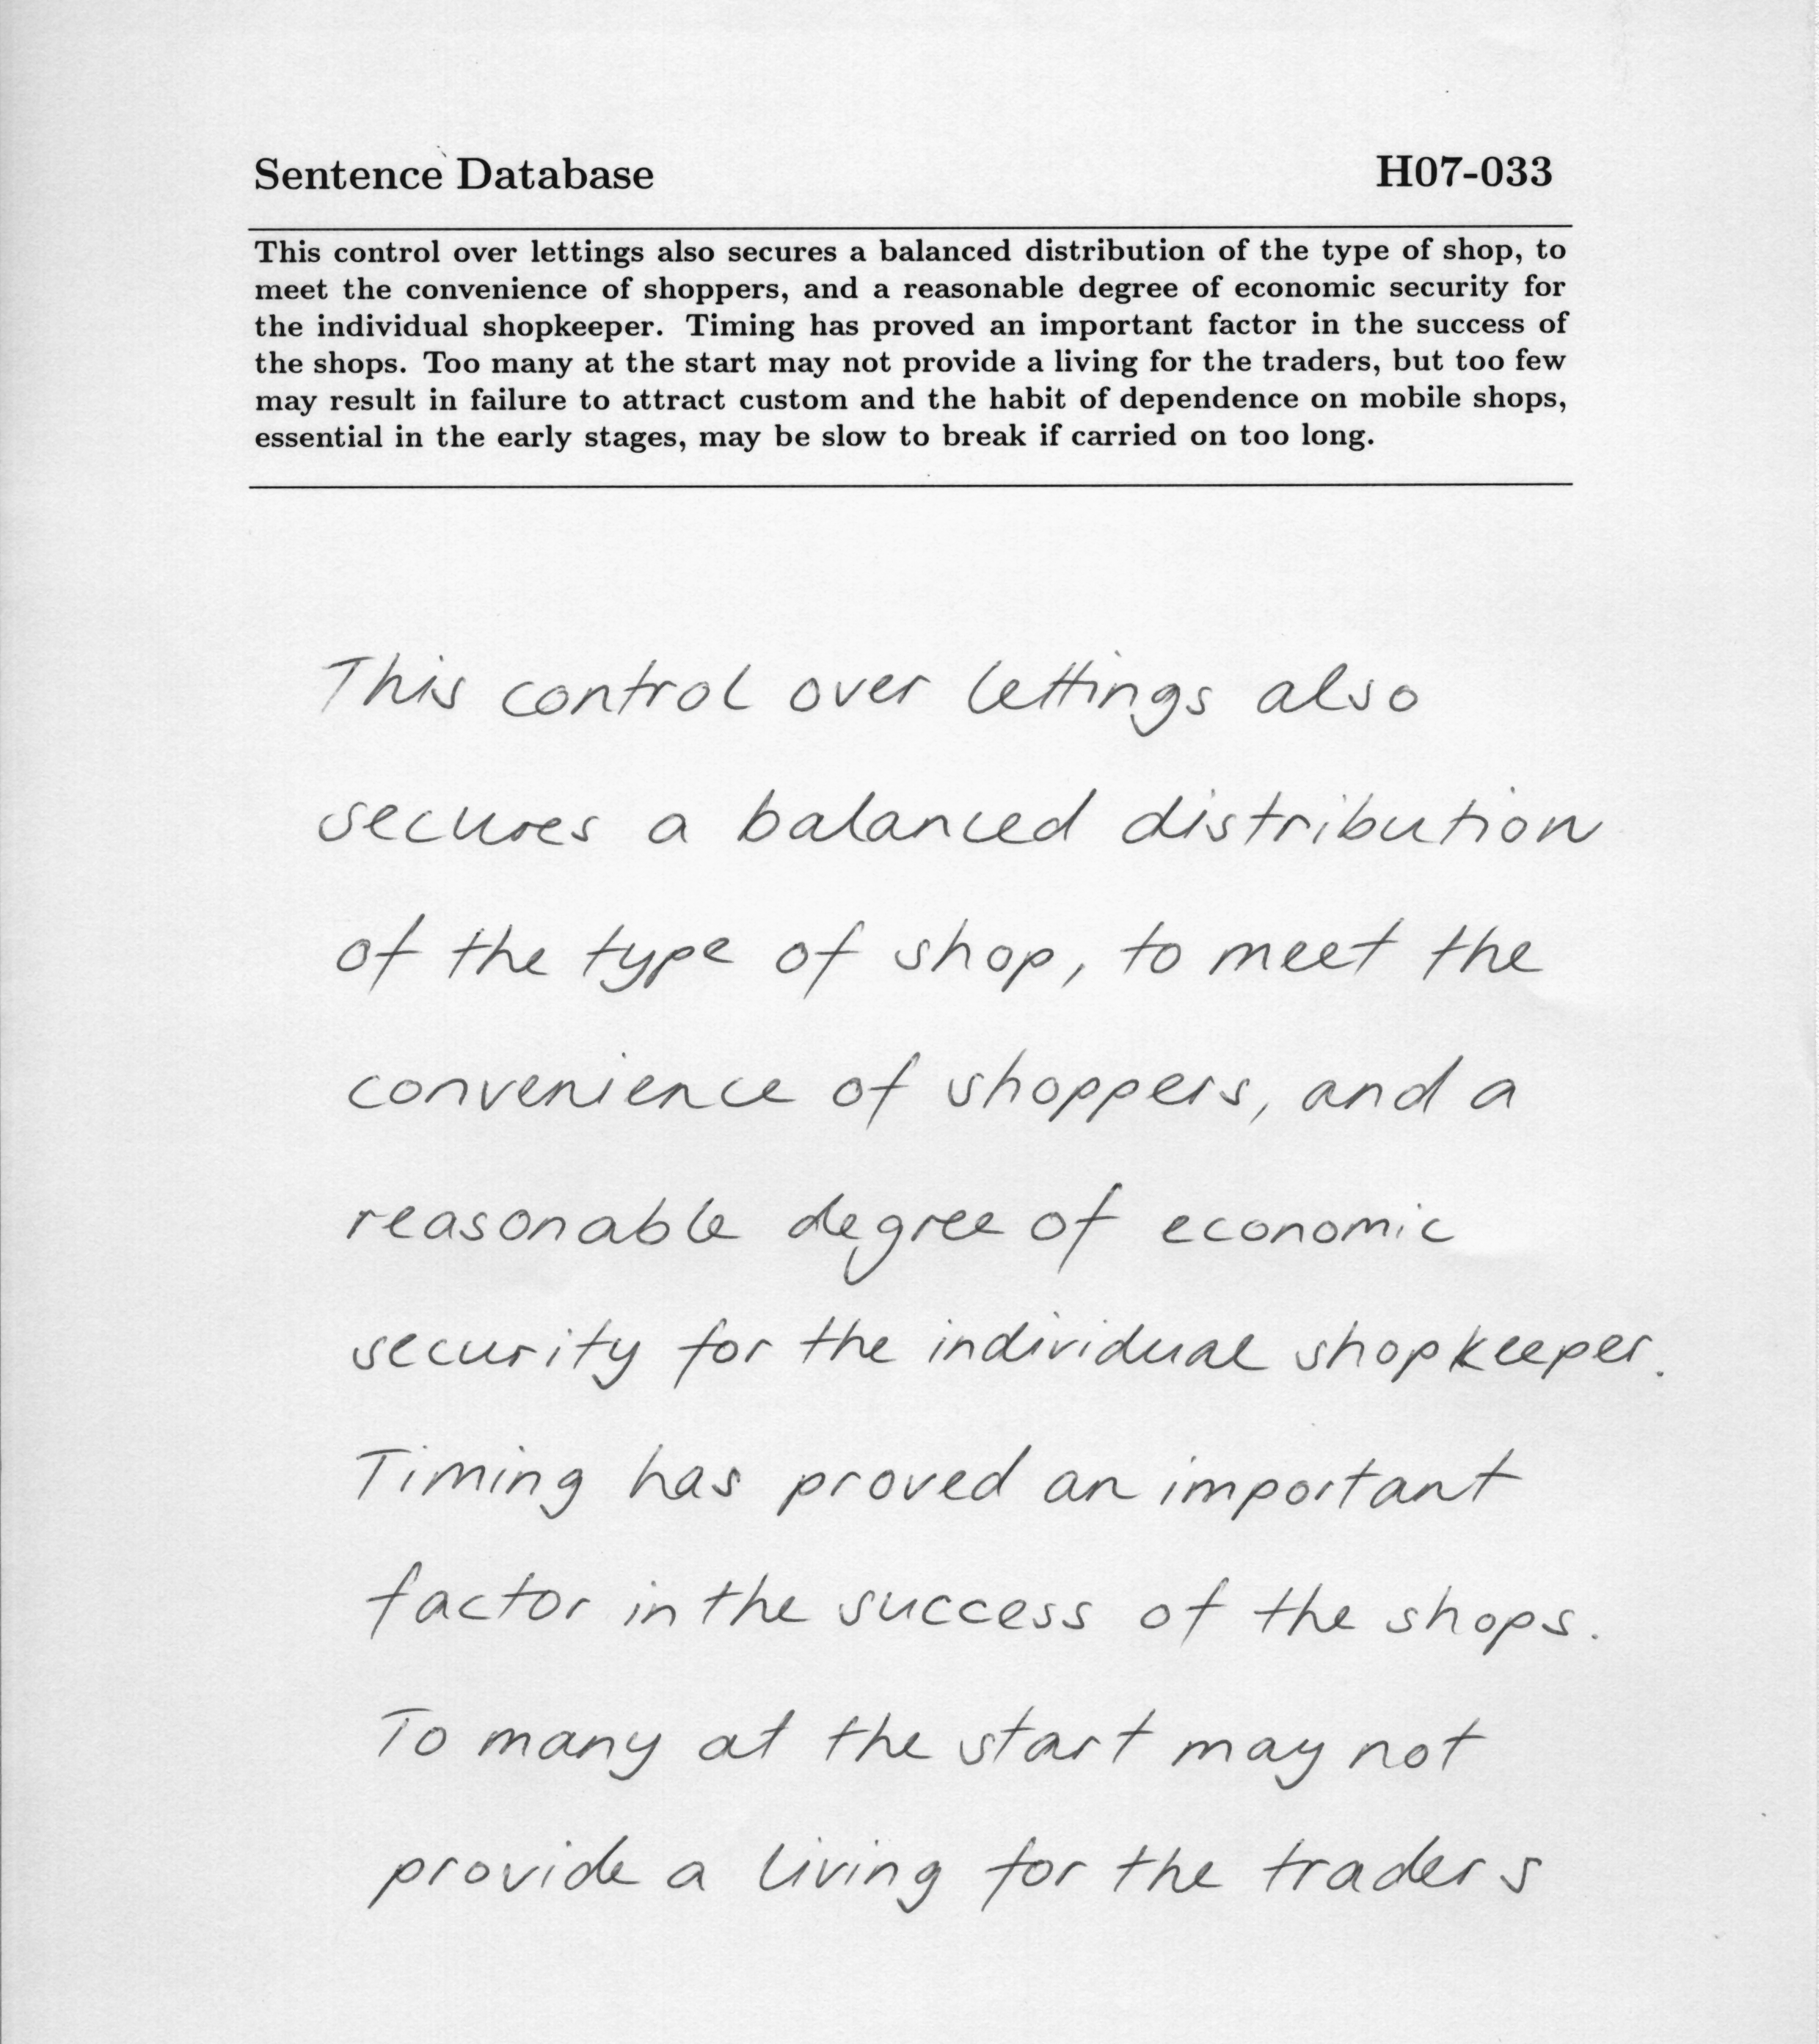 Sentence Database H07-033
This control over lettings also secures a balanced distribution of the type of shop, to
meet the convenience of shoppers, and a reasonable degree of economic security for
the individual shopkeeper. Timing has proved an important factor in the success of
the shops. Too many at the start may not provide a living for the traders, but too few
may result in failure to attract custom and the habit of dependence on mobile shops,
essential in the early stages, may be slow to break if carried on too long.
This control over lettings also
secures a balanced distribution
of the type of shop, to meet the
convenience of shoppers, and a
reasonable degree of economic
security for the individual shopkeeper.
Timing has proved an important
factor in the success of the shops.
To many at the start may not
provide a living for the traders